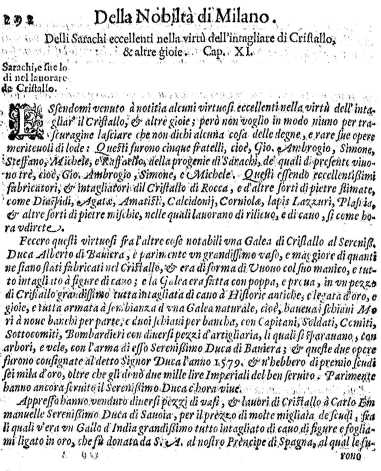 292 Della Nobiltà di Milano.
Delli Sarachi eccellenti nella virtù dell'intagliare di Cristallo,
& altre gioie. Cap. XI.
Sarachi, e sue lo
di nel lauorare
de Cristallo.
ESsendomi venuto à notitia alcuni virtuosi eccellenti nella virtù dell'inta
gliar il Cristallo, & altre gioie; però non voglio in modo niuno per tra-
scuragine lasciare che non dichi alcuna cosa delle degne, e rare sue opere
meriteuoli di lode: Questi furono cinque fratelli, cioè, Gio. Ambrogio, Simone,
Steffano, Michele, e Ruffaello, della progenie di Sarachi, de' quali di presente viuo-
no trè, cioè, Gio. Ambrogio, Simone, e Michele. Questi essendo eccellentissimi
fabricatori, & intagliatori del Cristallo di Rocca, e d'altre sorti di pietre stimate,
come Diaspidi, Agatæ, Amatisti, Calcidonij, Corniole, lapis Lazzari, Plasia,
& altre sorti di pietre mischie, nelle quali lauorano di rilieuo, e di cauo, si come ho-
ra vdirete.
Fecero questi virtuosi fra l'altre cose notabili vna Galea di Cristallo al Sereniss.
Duca Alberto di Bauiera, e parimente vn grandissimo vaso, e maggiore di quanti
ne siano stati fabricati nel Cristallo, & era di forma di Vuouo col suo manico, e tut-
to intagliato à figure di cauo; e la Galea era fatta con poppa, e prua, in vn pezzo
di Cristallo grandissimo tutta intagliata di cauo à Historie antiche, e legata d'oro, e
gioie, e tutta armata à sembianza d'vna Galea naturale, cioè, haueua schiaui Mo-
ri à noue banchi per parte, e duoi schiaui per bancha, con Capitani, Soldati, Comiti,
Sottocomiti, Bombardieri con diuersi pezzi d'artigliaria, li quali si sparauano, con
arbori, e vele, con l'arma di esso Serenissimo Duca di Bauiera; & queste due opere
furono consegnate al detto Signor Duca l'anno 1579. & n'hebbero di premio scudi
sei mila d'oro, oltre che gli donò due mille lire Imperiali del ben seruito. Parimente
hanno ancora seruito il Serenissimo Duca c'hora viue.
Appresso hanno venduto diuersi pezzi di vasi, & lauori di Cristallo à Carlo Em
manuelle Serenissimo Duca di Sauoia, per il prezzo di molte migliaia de scudi, fra
li quali v'era vn Gallo d'India grandissimo tutto intagliato di cauo di figure, e foglia-
mi ligato in oro, che fù donato da S. A. al nostro Prencipe di Spagna, al qual le fu-
rono